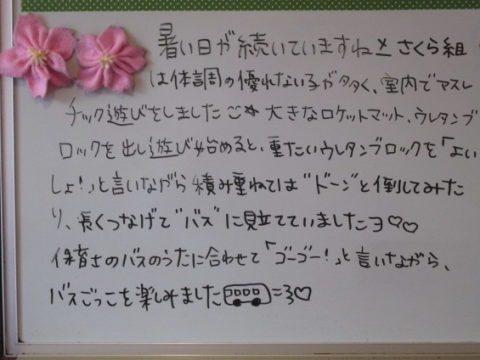 暑い日が続いていますね さくら組
は体調の優れない子が多く、室内でアスレ
チック遊びをしました 大きなロケットマット、ウレタンブ
ロックを出し遊び始めると、重たいウレタンブロックを「よい
しょ！」と言いながら積み重ねては"ドーン"と倒してみた
り、長くつなげて"バス"に見立てていましたヨ♡♡
保育士のバスのうたに合わせて「ゴーゴー！」と言いながら、
バスごっこを楽しみました♡